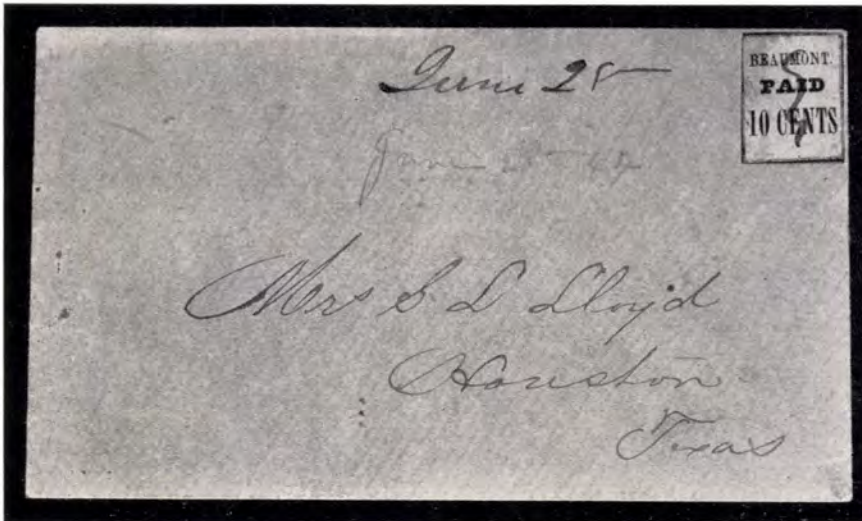 June 28
BEAUMONT.
PAID
10 CENTS
June 64
Mrs S. L Lloyd
Houston
Texas